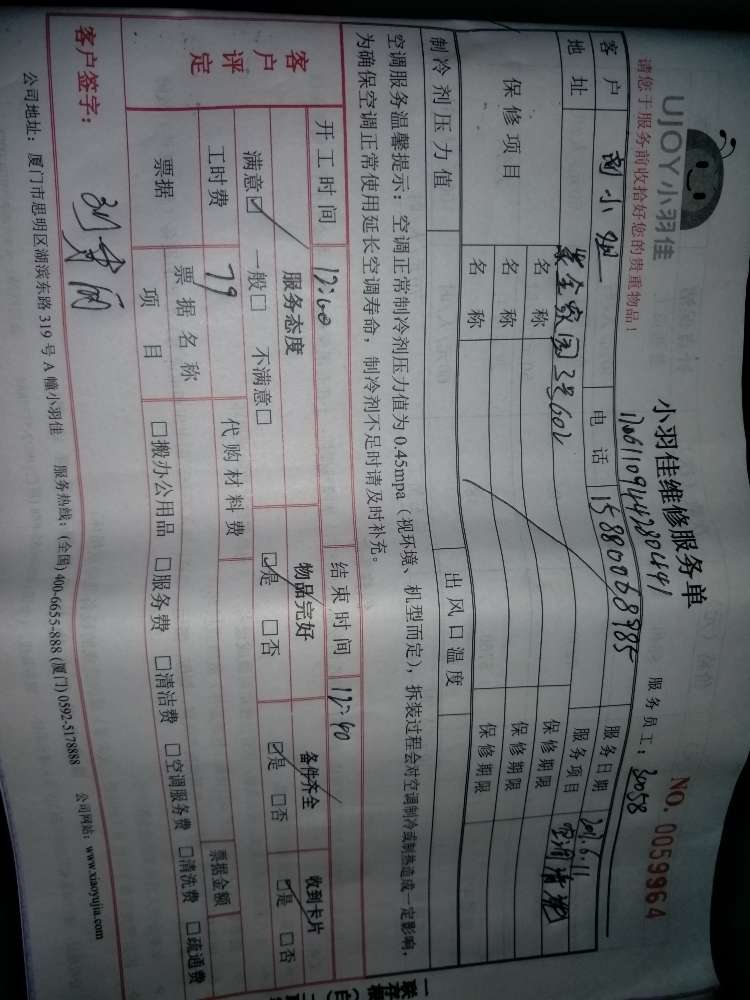 UJOY小羽佳
小羽佳维修服务单
NO. 0059964
请您于服务前收拾好您的贵重物品！
服务员工：30058
客户 电话 15880068985 服务日期
地址 3号602 服务项目 空调清洗
保修项目 名称 保修期限
名称 保修期限
名称 保修期限
制冷剂压力值 出风口温度
空调服务温馨提示：空调正常制冷剂压力值为 0.45mpa（视环境、机型而定），拆装过程会对空调制冷或制热造成一定影响，
为确保空调正常使用延长空调寿命，制冷剂不足时请及时补充。
开工时间 结束时间 12:40
客户评定
服务态度 物品完好 备件齐全 收到卡片
满意☑ 一般□ 不满意□ ☑是 □否 ☑是 □否 ☑是 □否
工时费 79 代购材料费
票据 票据名称 票据金额
项目 □搬办公用品 □服务费 □清洁费 □空调服务费 □清洗费 □疏通费
客户签字：
公司地址：厦门市思明区湖滨东路 319 号 A 幢小羽佳 服务热线：(全国) 400-6655-888 (厦门) 0592-5178888 公司网站：www.xiaoyujia.com